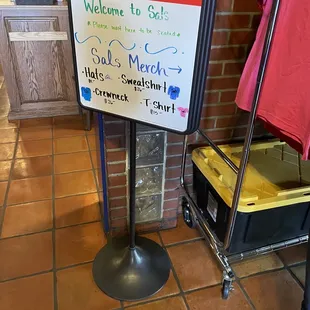 Welcome to Sal's
Please wait here to be Seated
Sals Merch →
·Hats
·Sweatshirt
·Crewneck
·T-shirt